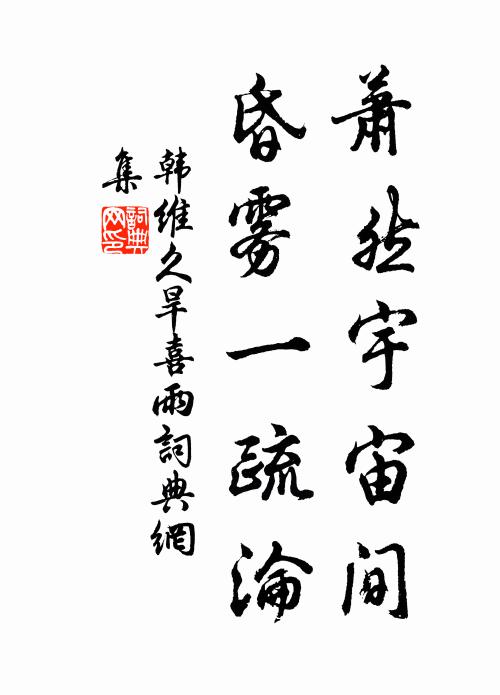 萧然宇宙间
昏雾一疏瀹
韩维久旱喜雨詞典網
集
詞典
网印